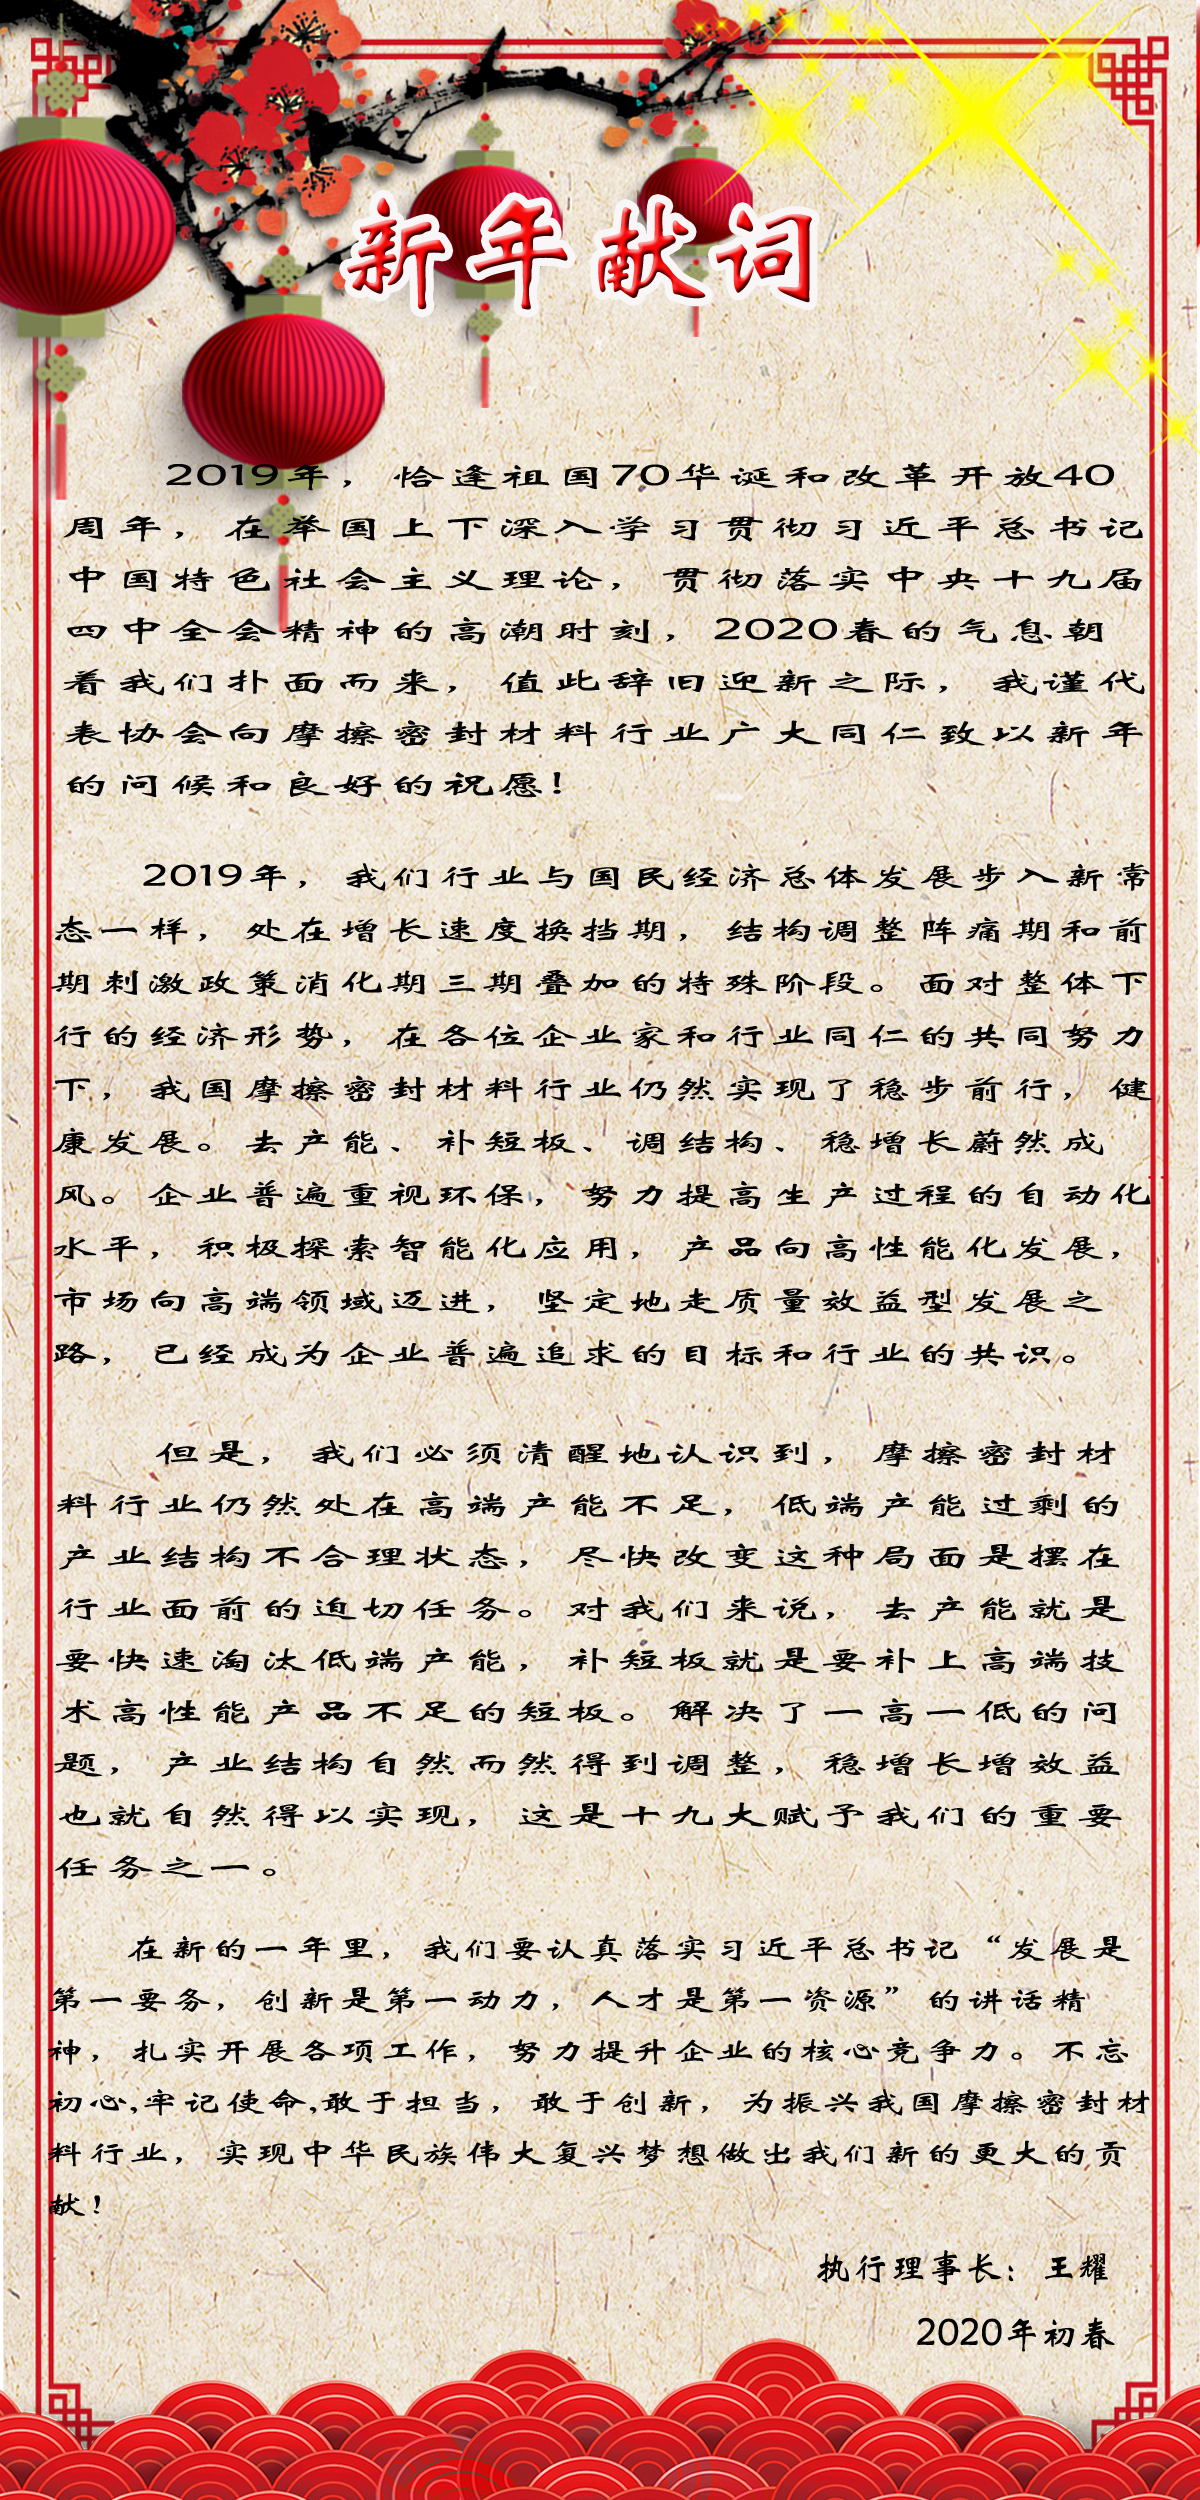 新年献词
2019年，恰逢祖国70华诞和改革开放40
周年，在举国上下深入学习贯彻习近平总书记
中国特色社会主义理论，贯彻落实中央十九届
四中全会精神的高潮时刻，2020春的气息朝
着我们扑面而来，值此辞旧迎新之际，我谨代
表协会向摩擦密封材料行业广大同仁致以新年
的问候和良好的祝愿！
2019年，我们行业与国民经济总体发展步入新常
态一样，处在增长速度换挡期，结构调整阵痛期和前
期刺激政策消化期三期叠加的特殊阶段。面对整体下
行的经济形势，在各位企业家和行业同仁的共同努力
下，我国摩擦密封材料行业仍然实现了稳步前行，健
康发展。去产能、补短板、调结构、稳增长蔚然成
风。企业普遍重视环保，努力提高生产过程的自动化
水平，积极探索智能化应用，产品向高性能化发展，
市场向高端领域迈进，坚定地走质量效益型发展之
路，已经成为企业普遍追求的目标和行业的共识。
但是，我们必须清醒地认识到，摩擦密封材
料行业仍然处在高端产能不足，低端产能过剩的
产业结构不合理状态，尽快改变这种局面是摆在
行业面前的迫切任务。对我们来说，去产能就是
要快速淘汰低端产能，补短板就是要补上高端技
术高性能产品不足的短板。解决了一高一低的问
题，产业结构自然而然得到调整，稳增长增效益
也就自然得以实现，这是十九大赋予我们的重要
任务之一。
在新的一年里，我们要认真落实习近平总书记“发展是
第一要务，创新是第一动力，人才是第一资源”的讲话精
神，扎实开展各项工作，努力提升企业的核心竞争力。不忘
初心,牢记使命,敢于担当，敢于创新，为振兴我国摩擦密封材
料行业，实现中华民族伟大复兴梦想做出我们新的更大的贡
献！
执行理事长：王耀
2020年初春